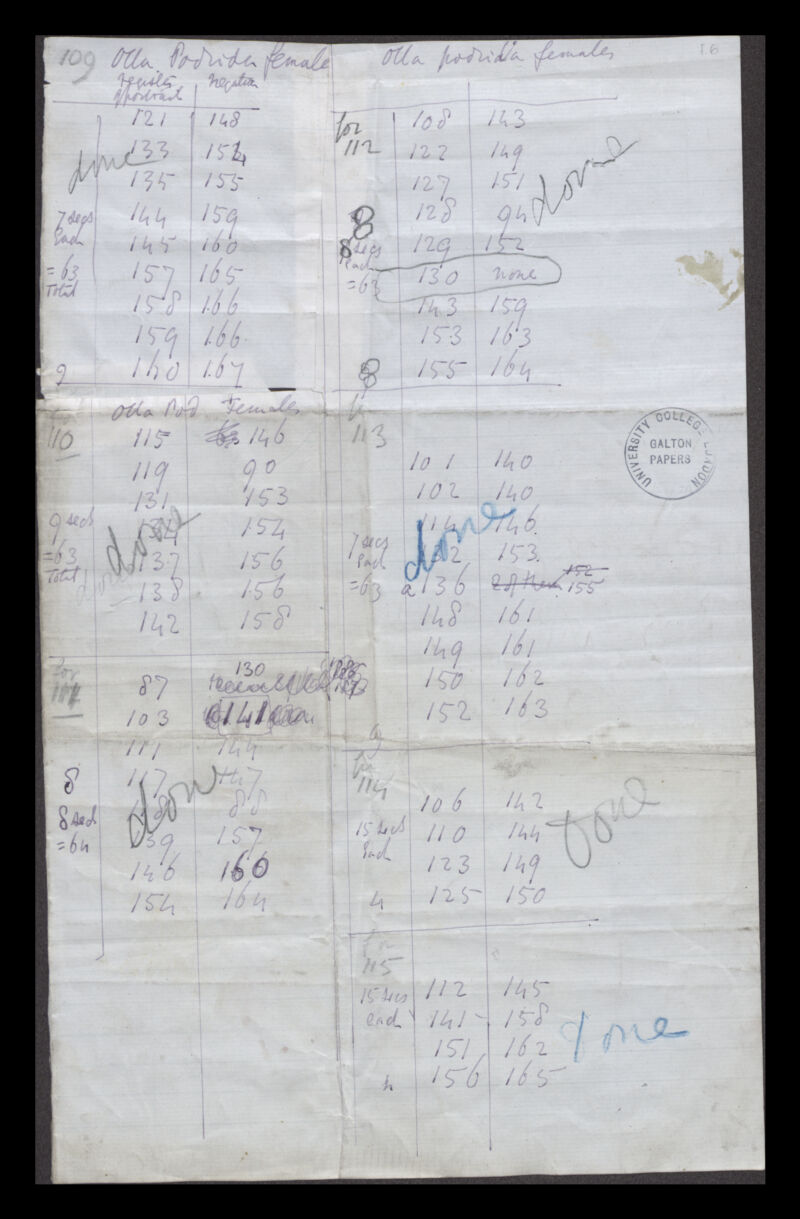 109 Olla Podrida female
Register of portrait Negative
121 148
done 133 154
135 155
7 secs 144 159
Each 145 160
= 63 157 165
Total 158 166
159 166
9 160 167
Olla Pod Females
110 115 146
119 90
131 153
9 secs 134 154
= 63 done 137 156
Total 138 156
142 158
for 87 130
103 141
111 144
8 117 147
8 secs done 88
= 64 139 157
146 160
154 164
Olla podrida females 16
for 108 143
112 122 149 done
127 151
8 128 94
8 secs 129 152
Each 130 none
= 63 143 159
153 163
8 155 164
113
101 140
102 140
114 146
7 secs done 153
Each
= 63 a 136 2 of them 152 155
148 161
149 161
150 162
152 163
9
for
114 106 142
15 secs 110 144 done
Each 123 149
4 125 150
for
115
15 secs 112 145
each 141 158 done
151 162
156 165
UNIVERSITY COLLEGE LONDON
GALTON PAPERS